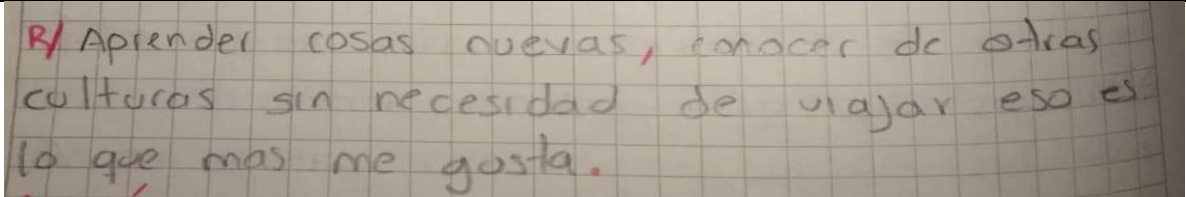 R/ Aprender cosas nuevas, conocer de otras
culturas sin necesidad de viajar eso es
lo que mas me gusta.